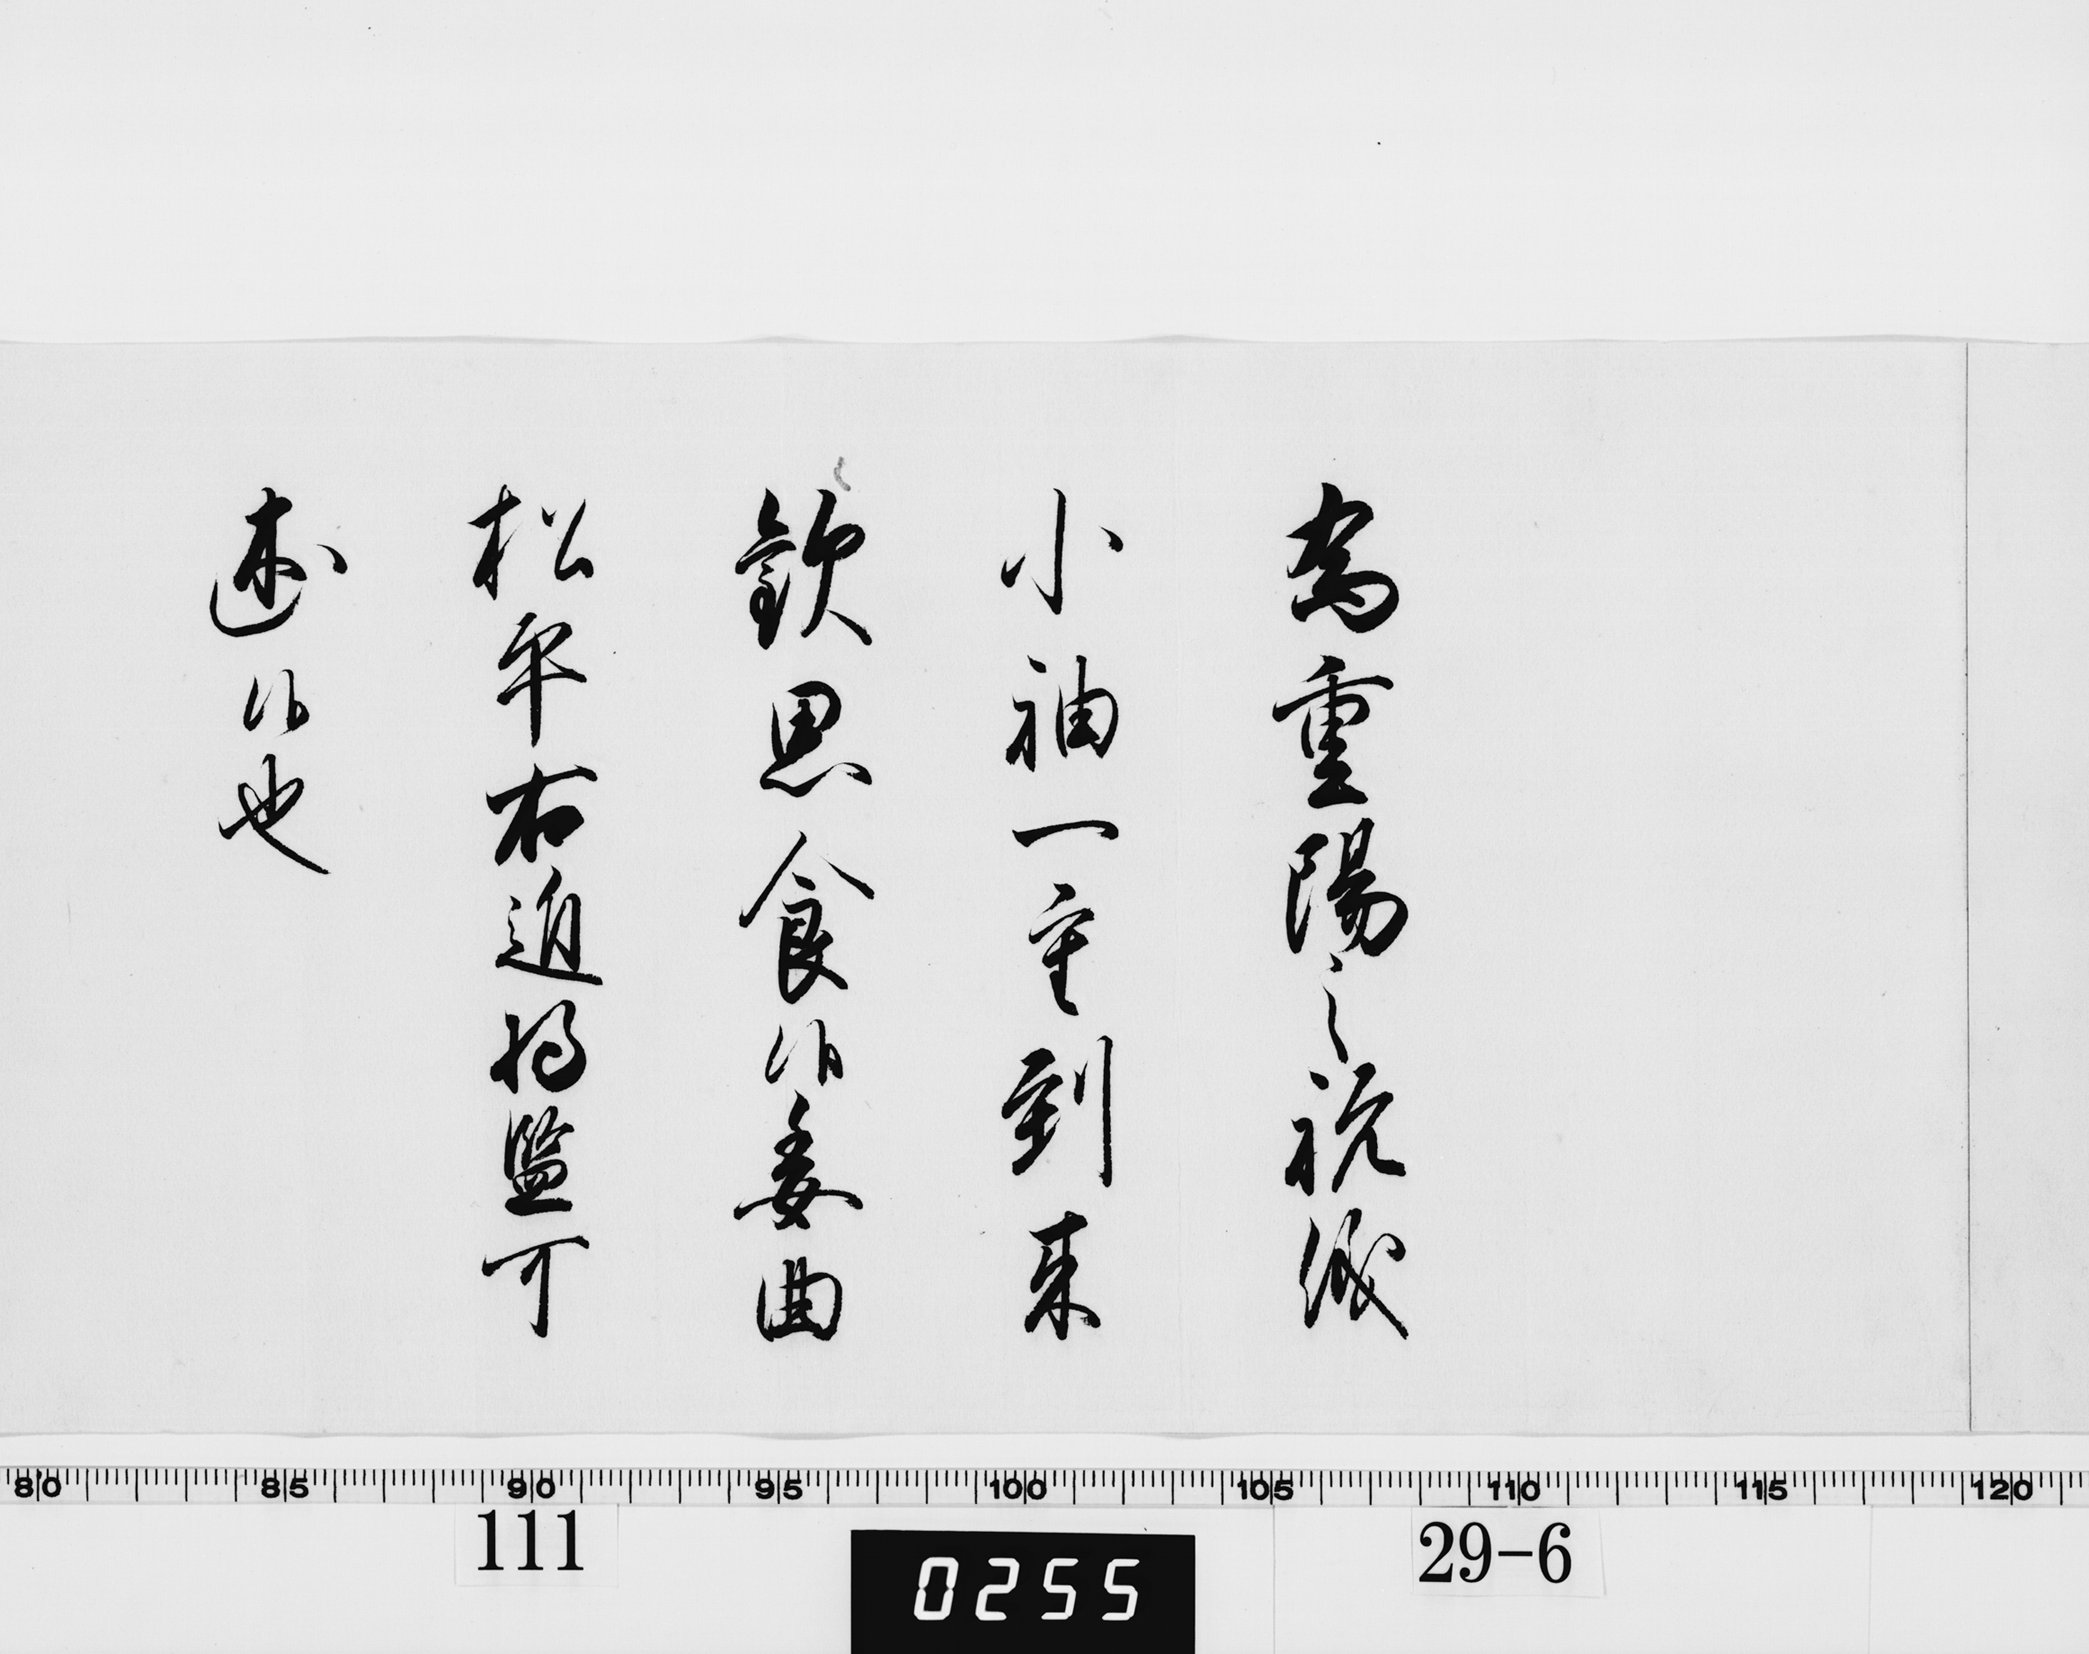 為重陽之祝儀
小袖一重到来
歓思食候委曲
松平右近将監可
述候也
80 85 90 95 100 105 110 115 120
111
0255
29-6